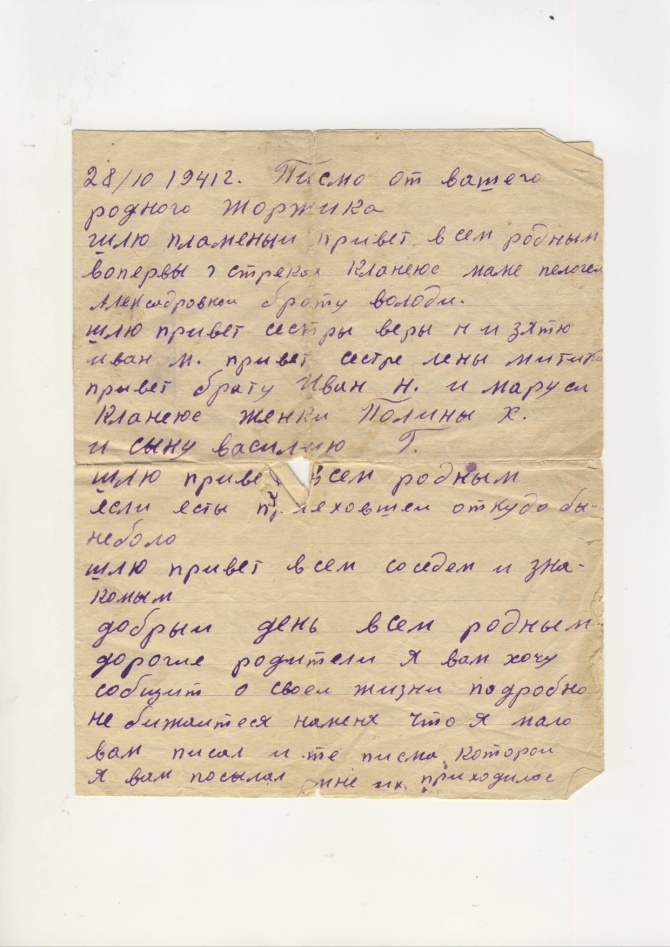 28/10 1941г. Писмо от вашего
родного Жоржика
шлю пламеный привет всем родным
вопервы стреках Кланеюс маме
Алексадровнои брату володи.
шлю привет сестры веры н и зятю
иван м. привет сестре лены митики
привет брату Иван Н. и маруси
Кланеюс женки Полины Х.
и сыну василию Г.
шлю привет всем родным
если есты откудо бы-
неболо
шлю привет всем соседем и зна-
комым
добрыи день всем родным-
дорогие родители Я вам хочу
собщит о своеи жизни подробно
не бижаитеся наменя что Я мало
вам писал и те писма которои
Я вам посылал мне их приходилос